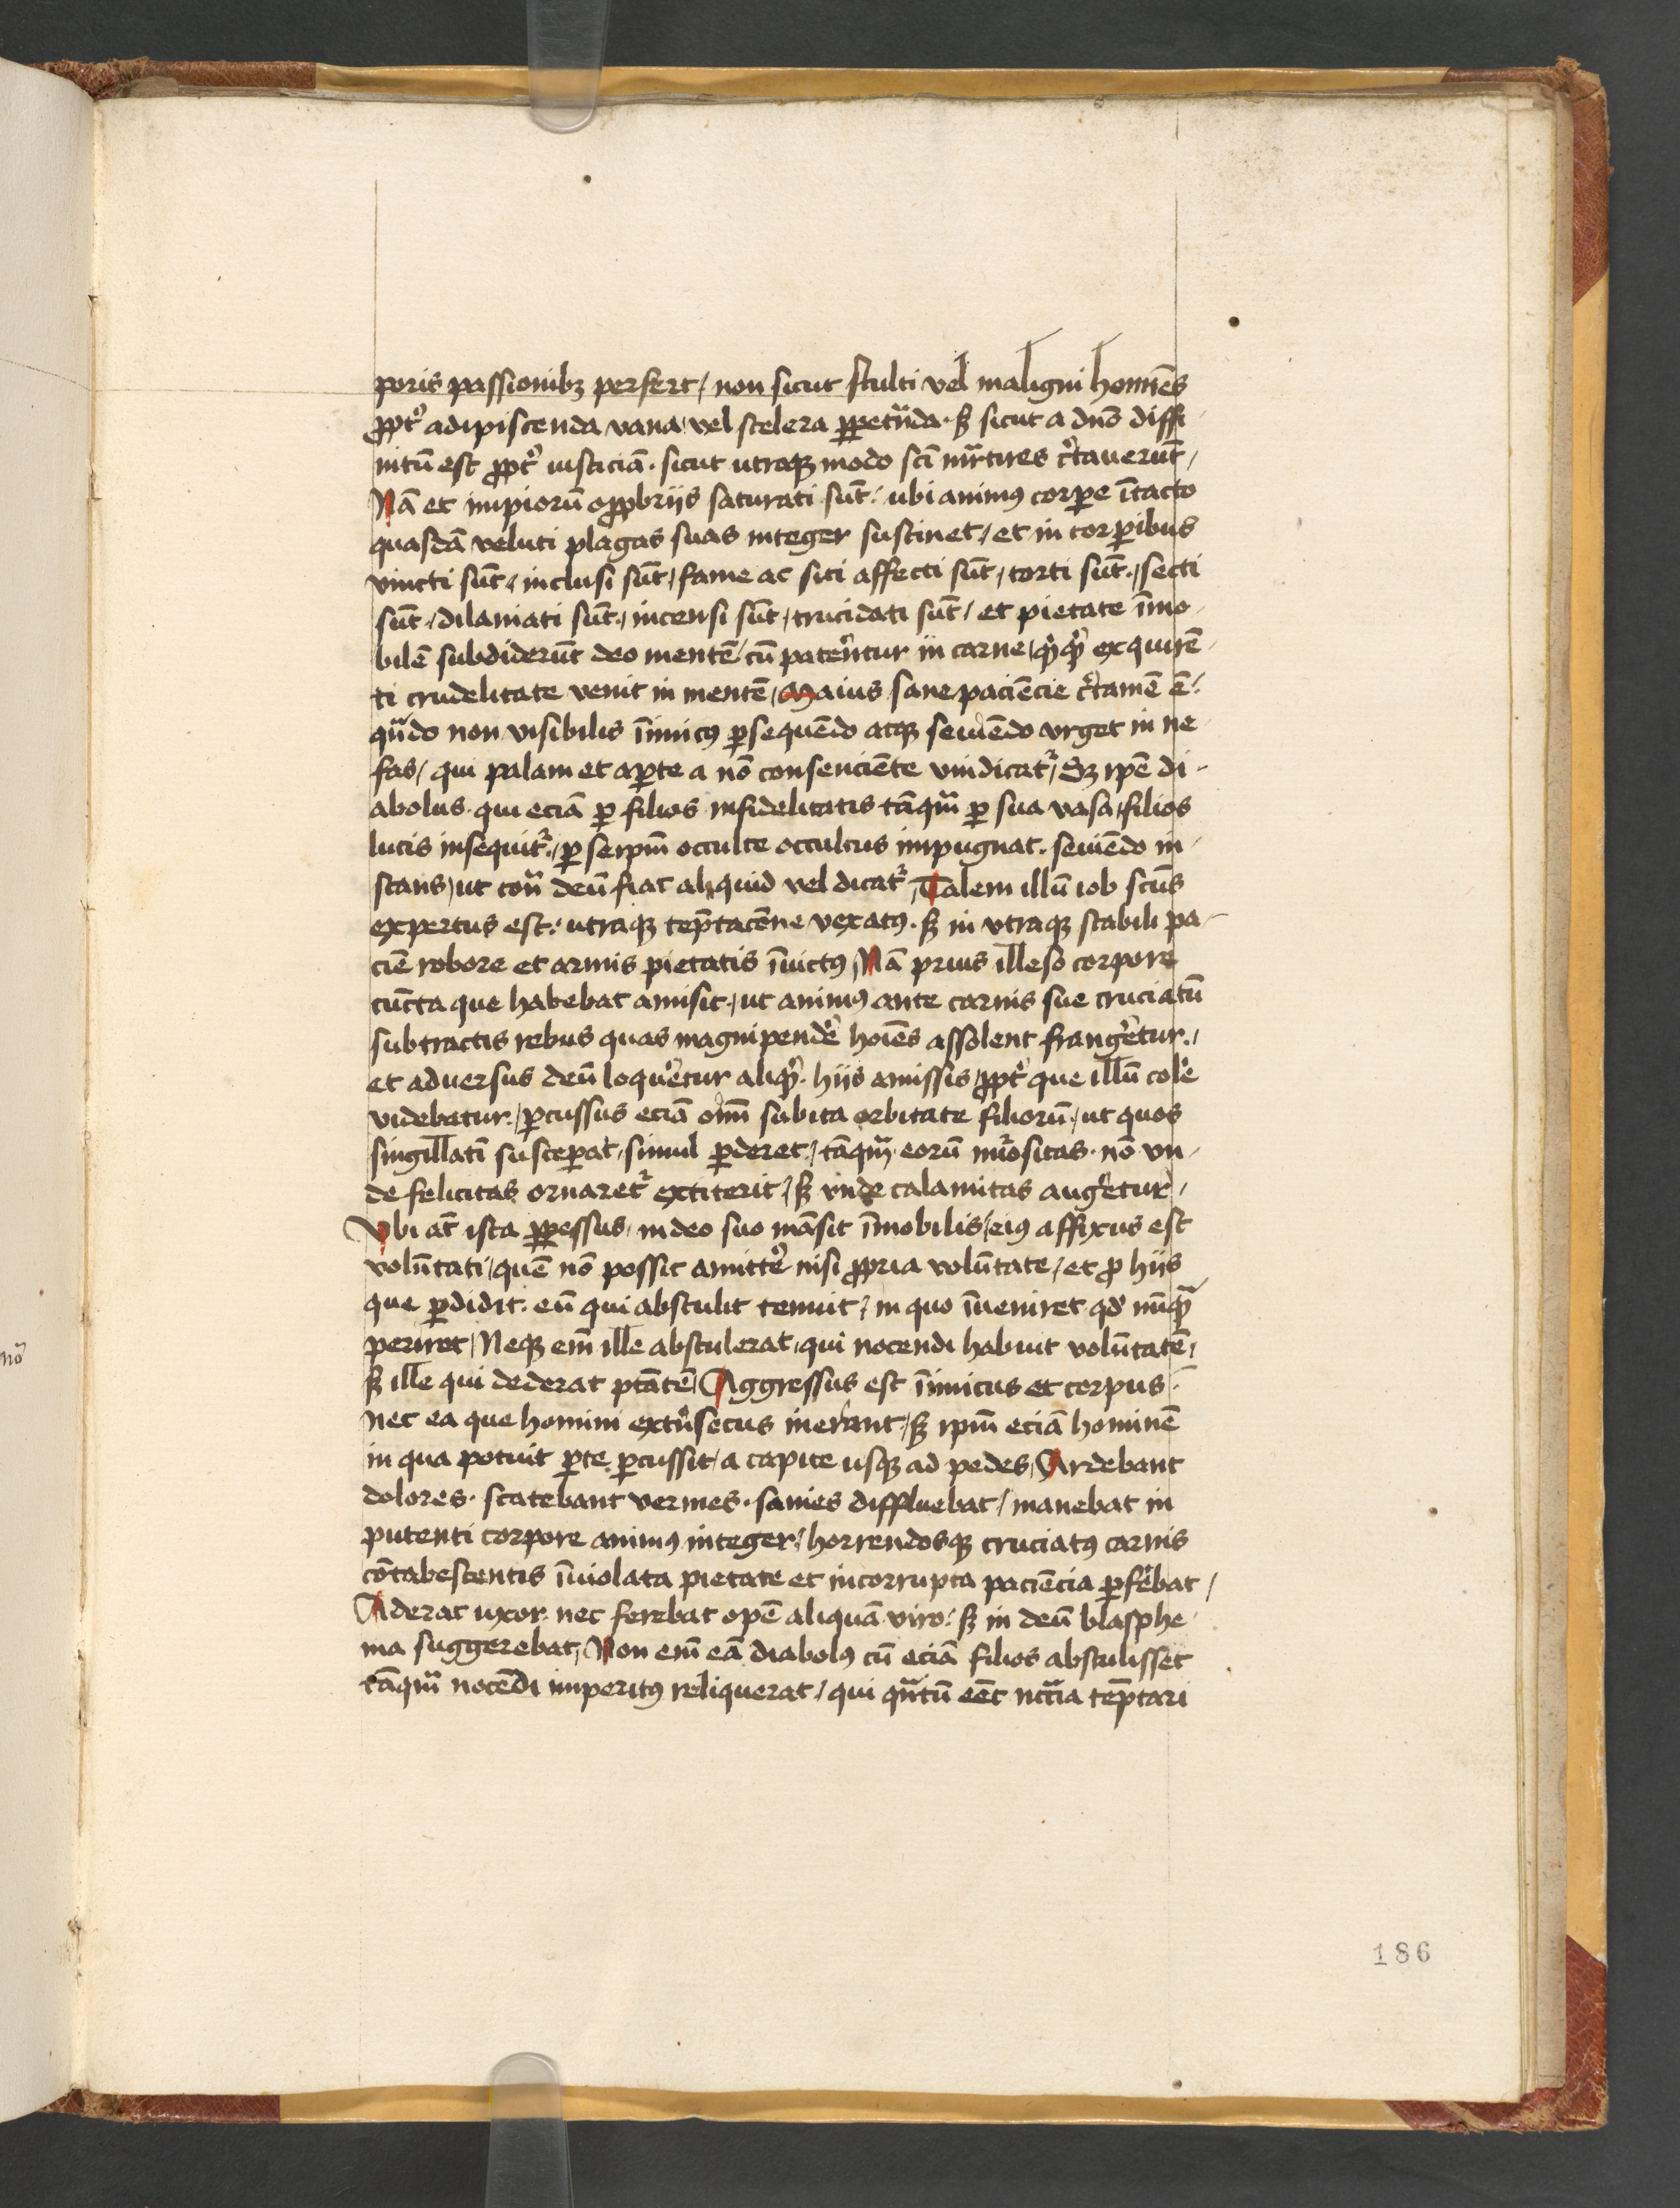 poris passionibꝫ perfert / non sicut stulti vel maligni homīes
ꝓpt̄ adipiscenda vana / vel scelera ꝑpetrāda · sꝫ sicut a dn̄o diffi
nitū est ꝓpt̄ iusticiā · sicut utroqꝫ modo scī mr̄tires c̄tauerūt /
Nā et impiorū opꝓbriis saturati sūt / ubi animꝰ corꝑe ītacto
quasdā veluti plagas suas integer sustinet / et in corꝑibus
vincti sūt / inclusi sūt / fame ac siti affecti sūt / torti sūt / secti
sūt / dilaniati sūt / incensi sūt / trucidati sūt / et pietate īmo
bilē subdiderūt deo mentē / cū patēntur in carne / qͥqͥd exquirē
ti crudelitate venit in mentē / Maius sane paciēcie c̄tamē ē /
qn̄do non visibilis īimicꝰ ꝑsequēdo atqꝫ seuiēdo vrget in ne
fas / qui palam et aꝑte a nō consenciēte vindicat᷑ / Sꝫ ip̄e di
abolus · qui eciā ꝑ filios infidelitatis tāqm̄ ꝑ sua vasa / filios
lucis insequit᷑ / ꝑ seip̄m occulte occultus impugnat · seuiēdo in
stans / ut cont̄ deū fiat aliquid vel dicat᷑ / Talem illū iob sctūs
expertus est / utraqꝫ tēptacōne vexatꝰ · sꝫ in vtraqꝫ stabili pa
ciē robore et armis pietatis īuictꝰ / Nā prius illeso corpore
cūcta que habebat amisit / ut animꝰ ante carnis sue cruciatū
subtractis rebus quas magnipendē hoīes assolent frangētur /
et aduersus deū loquētur aliqͥd · hiis amissis / ꝓpt̄ que illū colē
videbatur / ꝑcussus eciā om̄i subita orbitate filiorū / ut quos
singillatī susceꝑat / simul ꝑderet / tāqm̄ eorū nūositas · nō vn
de felicitas ornaret᷑ extiterit / sꝫ vnde calamitas augētur /
Vbi āt ista ꝑpessus / in deo suo māsit īmobilis / eiꝰ affixus est
volūtati / quē nō possit amittē nisi ꝓpria volūtate / et ꝓ hiis
que ꝑdidit · eū qui abstulit tenuit / in quo īueniret qd̄ nūqͣ
periret / Neqꝫ em̄ ille abstulerat / qui nocendi habuit volūtatē /
sꝫ ille qui dederat ptātē / Aggressus est īimicus et corpus /
nec ea que homini extīsecus inerant / sꝫ ip̄m eciā hominē
in qua potuit ꝑte ꝑcussit / a capite usqꝫ ad pedes / Ardebant
dolores · scatebant vermes · sanies diffluebat / manebat in
putenti corpore animꝰ integer / horrendosqꝫ cruciatꝰ carnis
cōtabescentis īuiolata pietate et incorrupta paciēcia ꝑfēbat /
Aderat uxor · nec ferebat opē aliquā viro / sꝫ in deū blasphe
ma suggerebat / Non em̄ eā diabolꝰ cū eciā filios abstulisset
tāqm̄ nocēdi imperitꝰ reliquerat / qui qn̄tū eēt nccīa tēptari
186
nō